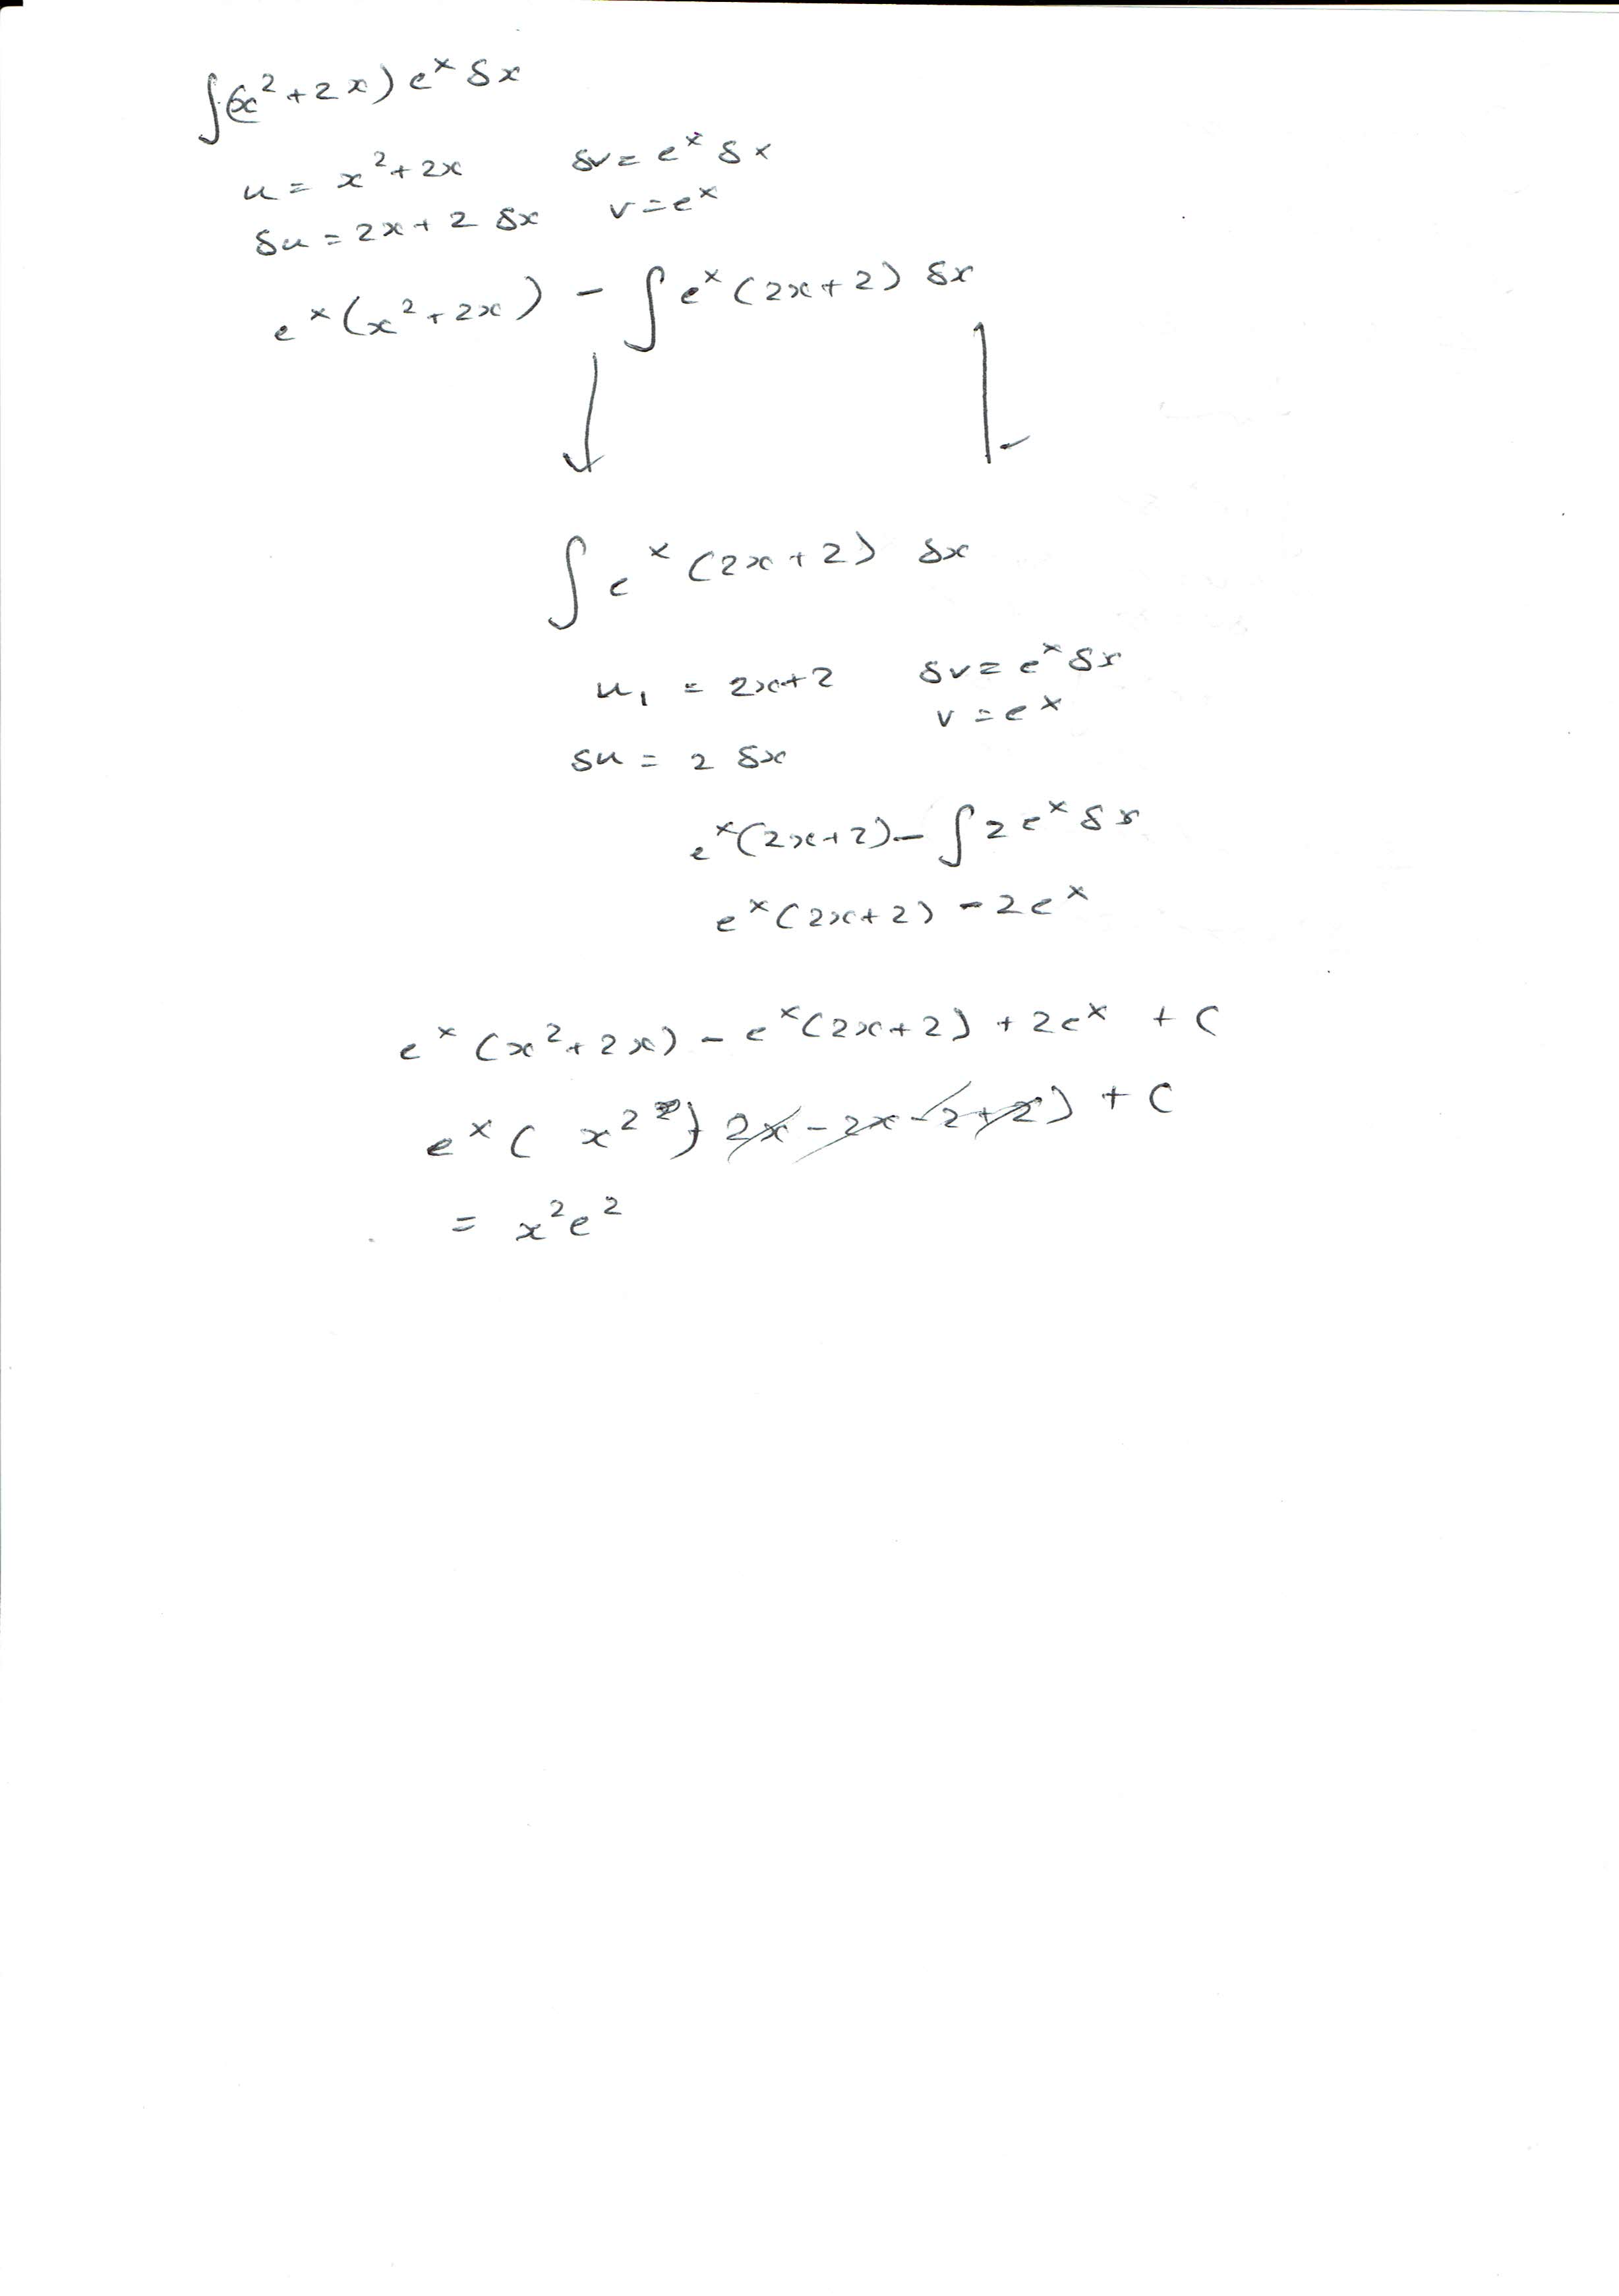 ∫(x² + 2x) eˣ δx
u = x² + 2x   δv = eˣ δx
δu = 2x + 2 δx   v = eˣ
eˣ(x² + 2x) − ∫eˣ(2x + 2) δx
∫eˣ(2x + 2) δx
u₁ = 2x+2   δv = eˣ δx
v = eˣ
δu = 2 δx
eˣ(2x+2) − ∫2eˣ δx
eˣ(2x+2) − 2eˣ
eˣ(x² + 2x) − eˣ(2x+2) + 2eˣ + C
eˣ( x² + 2x − 2x − 2 + 2) + C
= x²e²